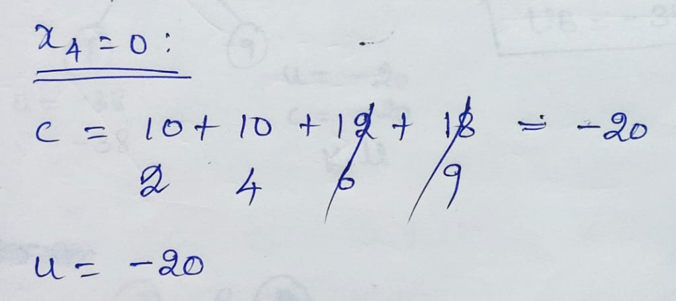 x₄ = 0 :
c = 10 + 10 + 12 + 18 = -20
2 4 6 9
u = -20